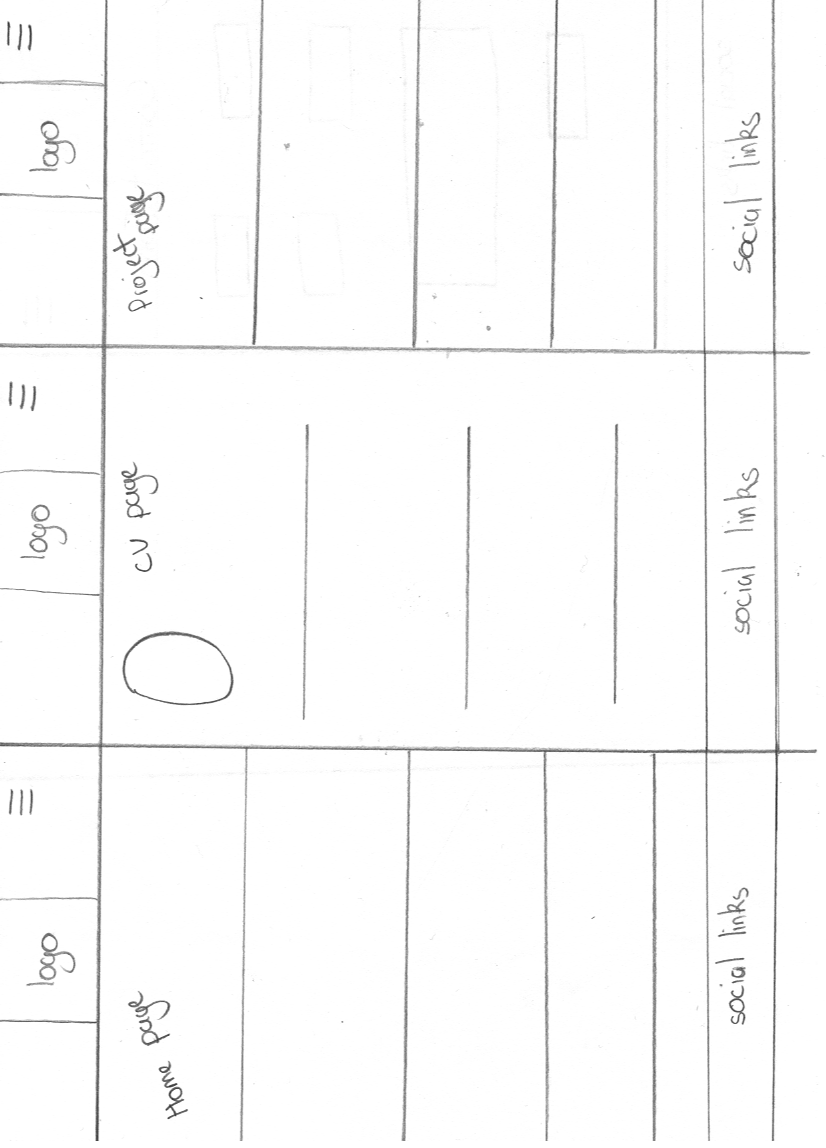 logo
Home page
social links
logo
CV page
social links
logo
Project
page
social links